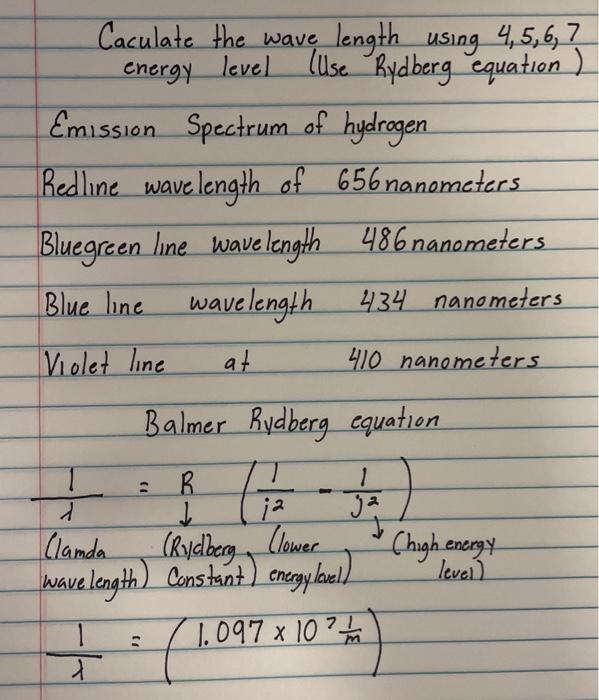 Caculate the wave length using 4,5,6,7
energy level (Use Rydberg equation)
Emission Spectrum of hydrogen
Redline wavelength of 656 nanometers
Bluegreen line wavelength 486 nanometers
Blue line wavelength 434 nanometers
Violet line at 410 nanometers
Balmer Rydberg equation
1/λ = R (1/i² - 1/j²)
(lamda wavelength) (Rydberg Constant) (lower energy level) (high energy level)
1/λ = (1.097 x 10⁷ 1/m)